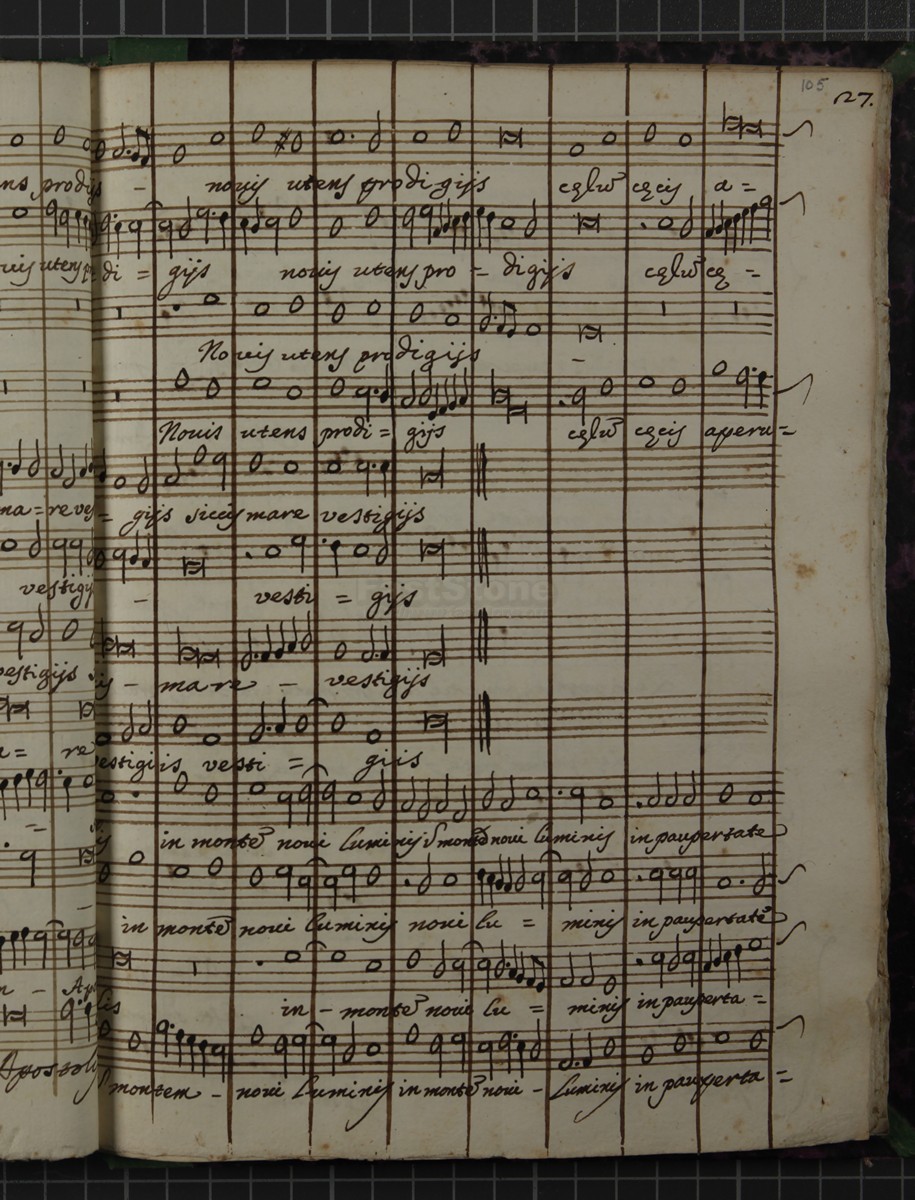 105 127.
ns prodigijs - nouis utens prodigijs cęlũ cęcis a=
uis utens prodi = gijs nouis utens pro = digijs cęlũ cę =
Nouis utens prodigijs -
Nouis utens prodi = gijs cęlũ cęcis aperu=
ma=re ves= gijs siccis mare vestigijs
vestigij - vesti = gijs
vestigijs - mare - vestigijs
a= re vestigiis vesti = giis
in montẽ noui luminis montẽ noui luminis in paupertate
in montẽ noui luminis noui lu = minis in paupertatẽ
in - montẽ noui lu = minis in pauperta =
Apostolis montem - noui luminis in montẽ noui - luminis in pauperta =